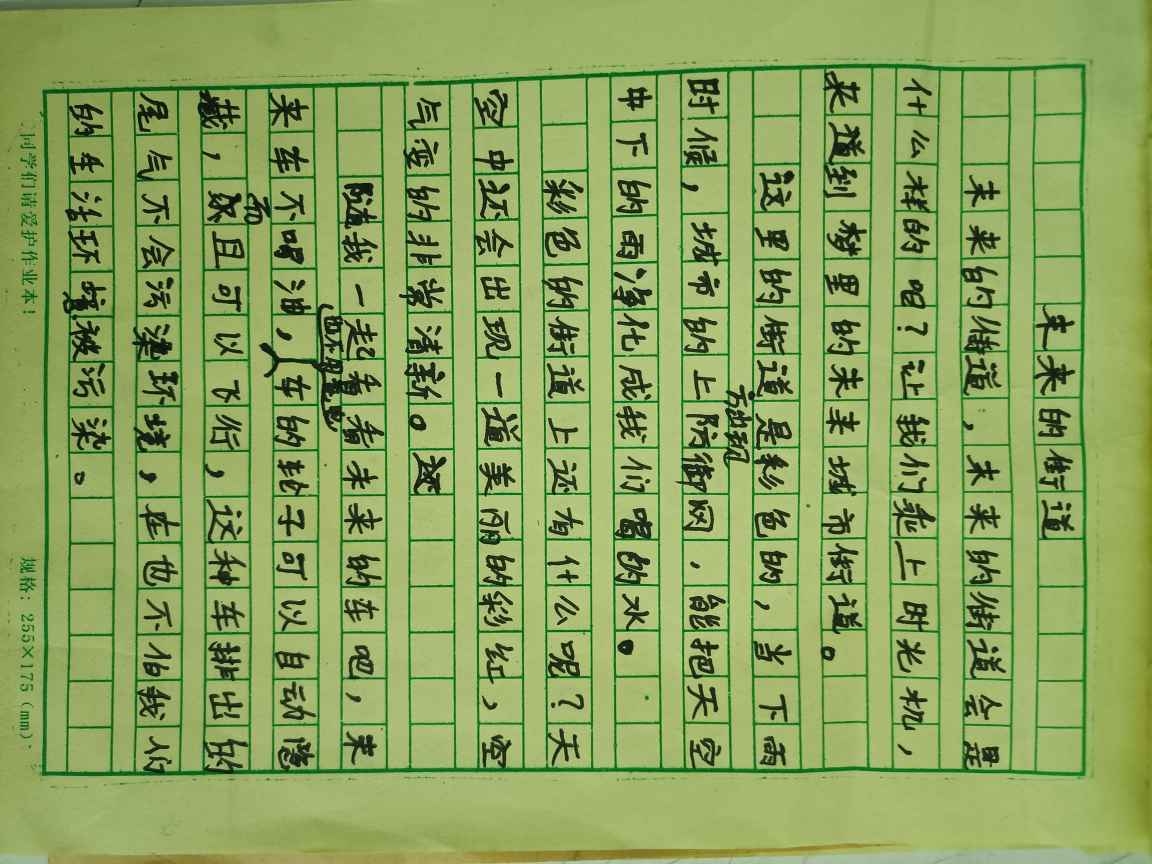 未来的街道
未来的街道，未来的街道会是
什么样的呢？让我们乘上时光机，
来道到梦里的未来城市街道。
这里的街道是彩色的，当下雨
方出现
时候，城市的上防御网，能把天空
中下的雨净化成我们喝的水。
彩色的街道上还有什么呢？天
空中还会出现一道美丽的彩红，空
气变的非常清新。还
随我一起看看未来的车吧，未
来车不喝油，车的轮子可以自动隐
而
藏，且可以飞行，这种车排出的
尾气不会污染环境，在也不怕我们
的生活环境被污染。
同学们请爱护作业本！
规格：255×175（mm）